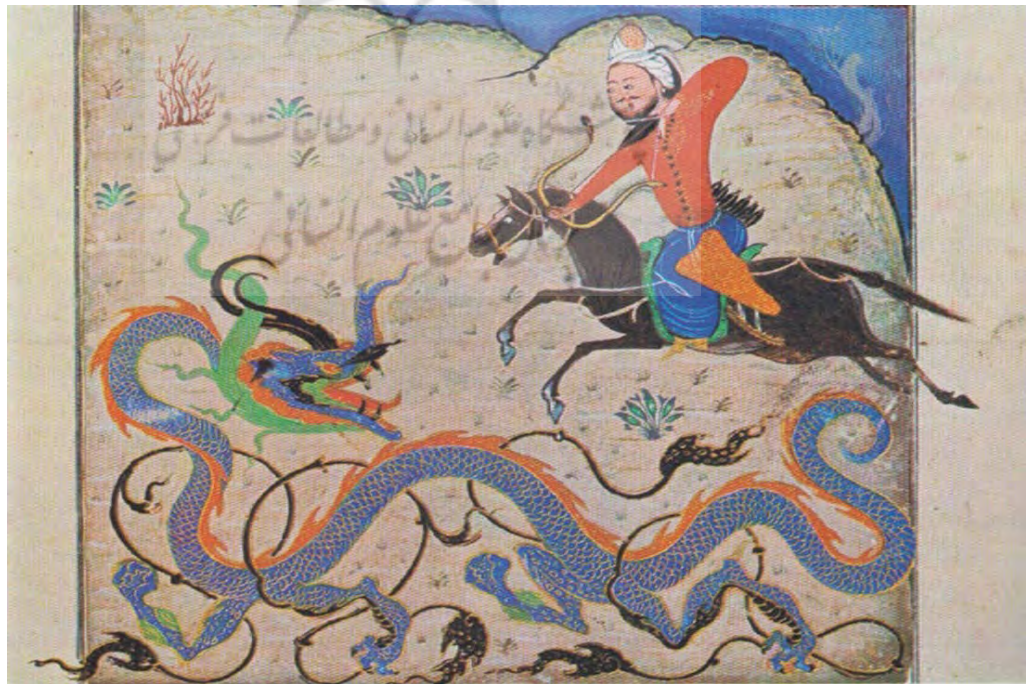 پژوهشگاه علوم انسانی و مطالعات فرهنگی
جامع علوم انسانی